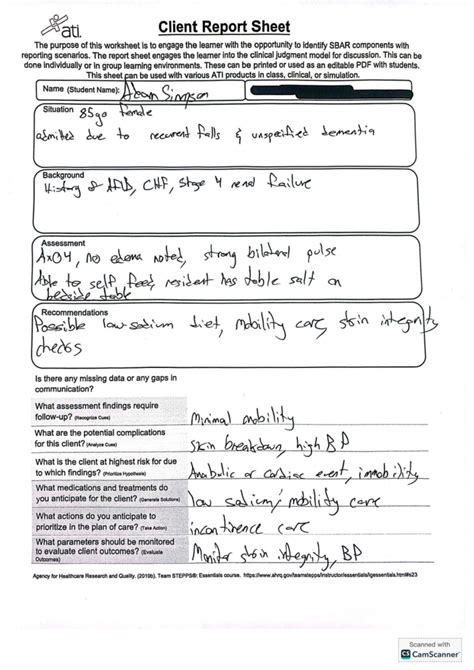 ati.
Client Report Sheet
The purpose of this worksheet is to engage the learner with the opportunity to identify SBAR components with
reporting scenarios. The report sheet engages the learner into the clinical judgment model for discussion. This can be
done individually or in group learning environments. These can be printed or used as an editable PDF with students.
This sheet can be used with various ATI products in class, clinical, or simulation.
Name (Student Name): Simpson
Situation 85yo female
admitted due to recurrent falls & unspecified dementia
Background
History of AFIB, CHF, Stage 4 renal failure
Assessment
AxO4, no edema noted, strong bilateral pulse
Able to self feed, resident has table salt on
bedside table
Recommendations
Possible low-sodium diet, mobility care, skin integrity
checks
Is there any missing data or any gaps in
communication?
What assessment findings require
follow-up? (Recognize Cues)
Minimal mobility
What are the potential complications
for this client? (Analyze Cues)
Skin breakdown, high BP
What is the client at highest risk for due
to which findings? (Prioritize Hypothesis)
or cardiac event, immobility
What medications and treatments do
you anticipate for the client? (Generate Solutions)
low sodium/mobility care
What actions do you anticipate to
prioritize in the plan of care? (Take Action)
incontinence care
What parameters should be monitored
to evaluate client outcomes? (Evaluate
Outcomes)
Monitor skin integrity, BP
Agency for Healthcare Research and Quality. (2019b). Team STEPPS®: Essentials course. https://www.ahrq.gov/teamstepps/instructor/essentials/igessentials.html#s23
Scanned with
CS CamScanner